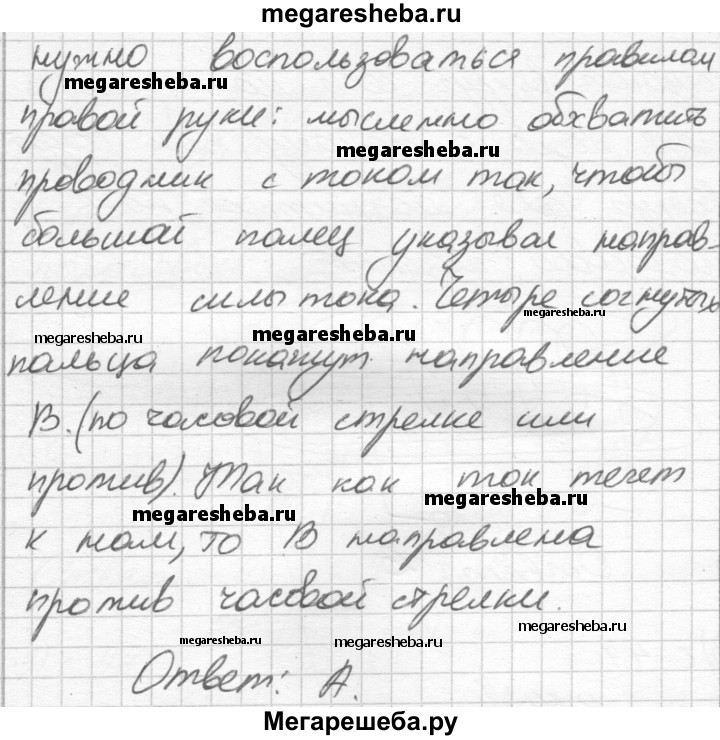 megaresheba.ru
нужно воспользоваться правилом
megaresheba.ru
правой руки: мысленно обхватить
megaresheba.ru
проводник с током так, чтобы
большой палец указывал направ-
ление силы тока. Четыре согнутых
megaresheba.ru megaresheba.ru megaresheba.ru
пальца покажут направление
B. (по часовой стрелке или
против). Так как ток течет
megaresheba.ru megaresheba.ru
к нам, то B направлена
против часовой стрелки.
megaresheba.ru megaresheba.ru megaresheba.ru
Ответ: А.
Мегарешеба.ру